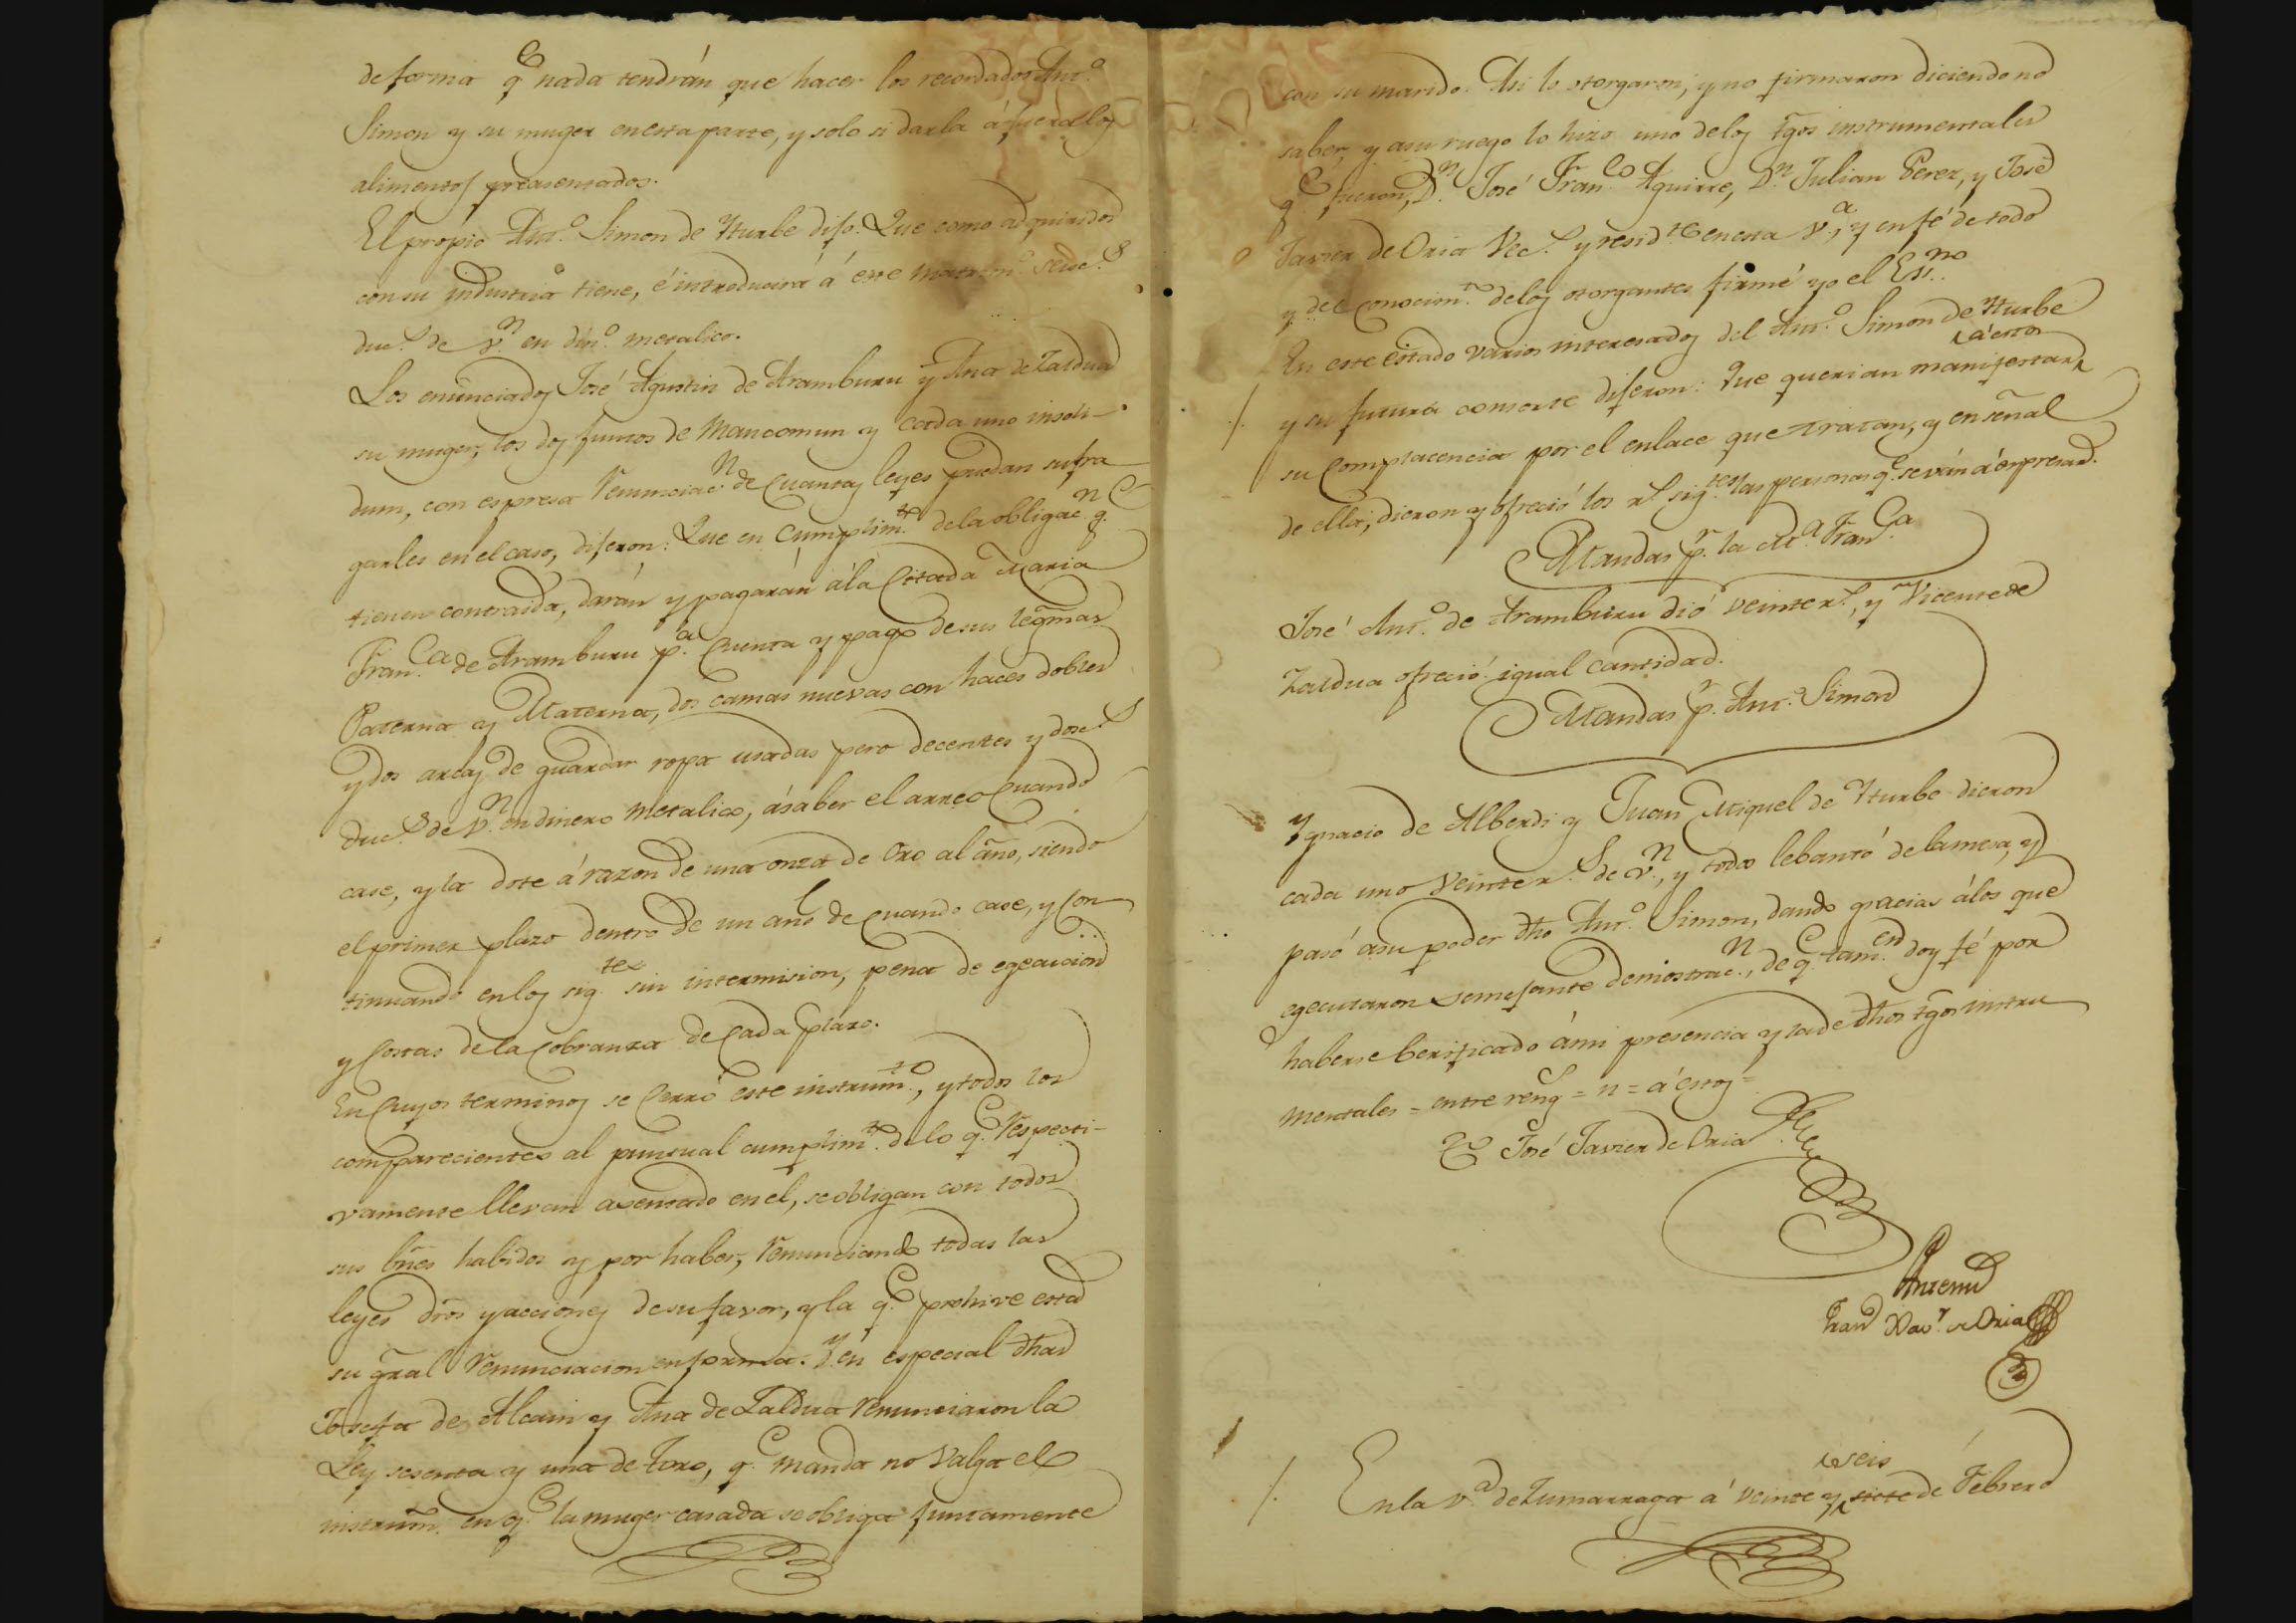 de forma q.e nada tendrán que hacer los recordados Ant.o
Simon y su muger en esta parte, y solo si darla á fuera los
alimentos preasentados.
El propio Ant.o Simon de Yturbe dijo: Que como adquiridos
con su industria tiene, é introducirá á este matrim.o seisc.s
duc.s de v.n en din.o metalico.
Los enunciados José Agustin de Aramburu y Ana de Zaldua
su muger, los dos juntos de mancomun y cada uno insoli-
dum, con espresa renunciac.n de cuantas leyes puedan sufra
garles en el caso, dijeron: Que en cumplim.to de la obligac.n q.e
tienen contraida, darán y pagarán á la citada Maria
Fran.ca de Aramburu p.a cuenta y pago de sus legmas
Paterna y Materna, dos camas nuevas con haces dobles
y dos arcas de guardar ropa usadas pero decentes y dosc.s
duc.s de v.n en dinero metalico, á saber el arreo cuando
case, y la dote á razon de una onza de oro al año, siendo
el primer plazo dentro de un año de cuando case, y con
tinuando en los sig.tes sin intermision, pena de egecucion
y costas de la cobranza de cada plazo.
En cuyos terminos se cerró este instrum.to, y todos los
comparecientes al puntual cumplim.to de lo q.e respecti-
vamente llevan asentado en el, se obligan con todos
sus bnes habidos y por haber, renunciando todas las
leyes dros y acciones de su favor, y la q.e prohive esta
su gral renunciacion en forma. Y en especial dhas
Josefa de Alcain y Ana de Zaldua renunciaron la
Ley sesenta y una de Toro, q.e manda no valga el
instrum. en q.e la muger casada se obliga juntamente
con su marido. Asi lo otorgaron, y no firmaron diciendo no
saber, y a su ruego lo hizo uno de los tgos instrumentales
q.e fueron, D.n José Fran.co Aguirre, D.n Julian Perez, y José
Javier de Oria Vec.s y resid.tes en esta v.a, y en fé de todo
y del conocim.to de los otorgantes firmé yo el Ess.no
En este estado varios interesados del Ant.o Simon de Yturbe
á estos
y su futura consorte dijeron: Que querian manifestar
su complacencia por el enlace que tratan, y en señal
de ella, dieron y ofreció los r.s sig.tes las personas q.e se ván á espresar.
Mandas p.r la M.a Fran.ca
José Ant.o de Aramburu dió veinte r.s, y Vicente de
Zaldua ofreció igual cantidad.
Mandas p.r Ant.o Simon
Ygnacio de Alberdi y Juan Miguel de Yturbe dieron
cada uno veinte r.s de v.n, y todo lebantó de la mesa, y
pasó a su poder dho Ant.o Simon, dando gracias á los que
egecutaron semejante demostrac.n, de q.e tam.en doy fé por
haberse berificado á mi presencia y la de dhos tgos instru
mentales = entre reng.s = n = á estos =
José Javier de Oria
Antemi
Fran.co Xav.r de Oria
seis
En la v.a de Zumarraga á veinte y siete de Febrero